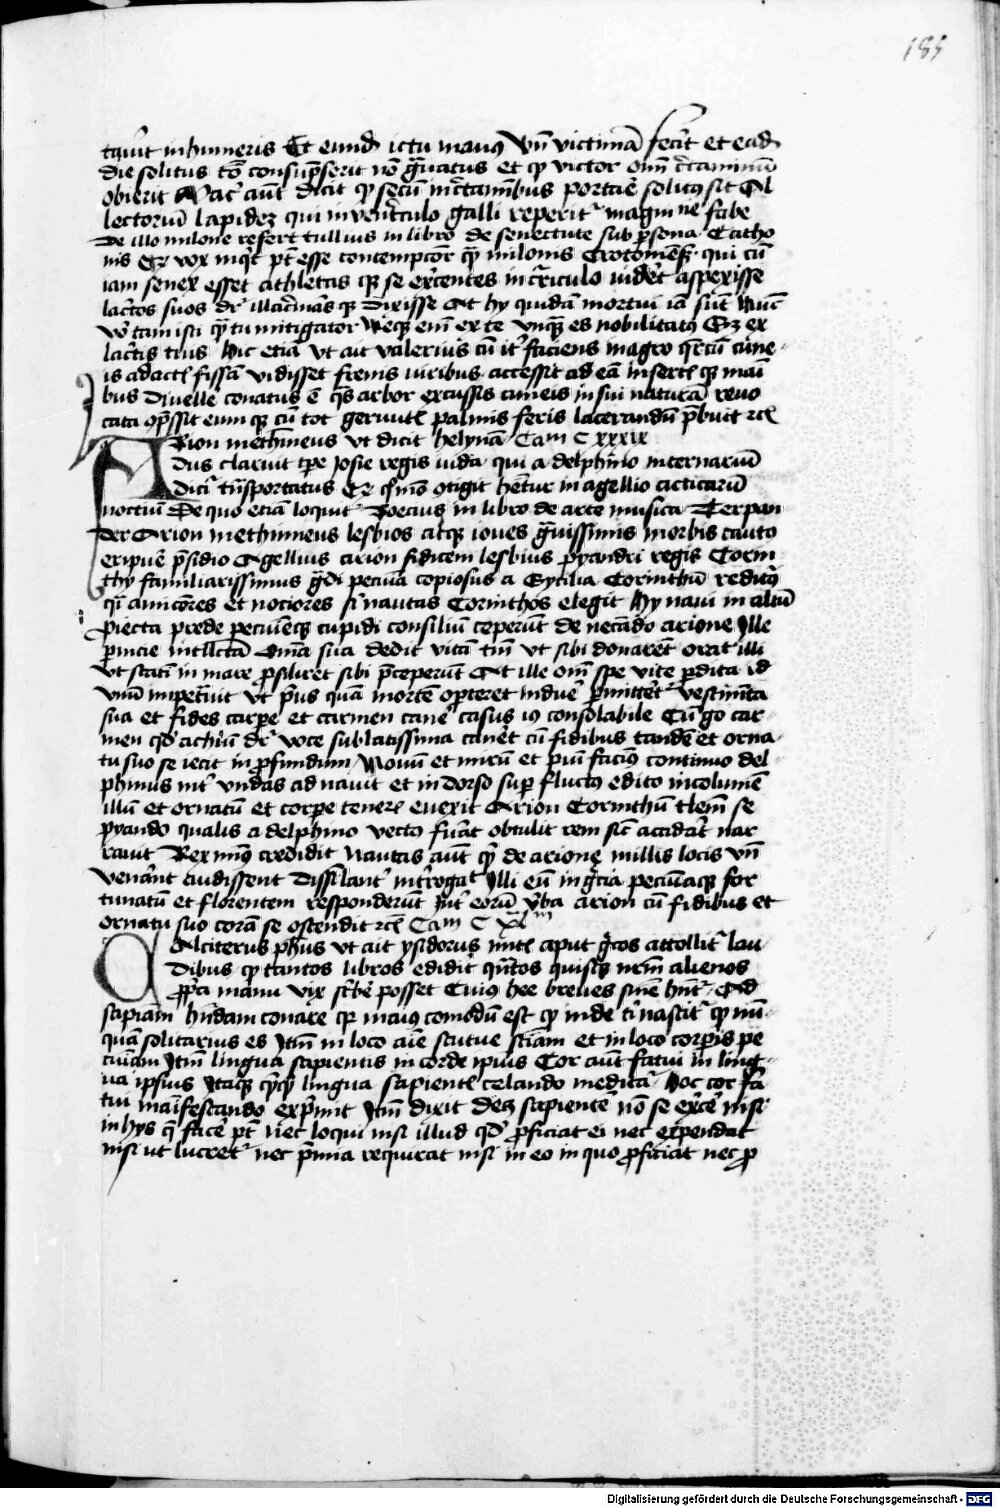 185
tavit in humeris Et eund ictu manus vn̄ victimā fecit et ead
die solitus tō consumpserit nō grauatus et qp victor om̄ c̄taminū
obierit Nac̄ aut dicit qp secū in c̄taminibus portare solitus sit Al
lectoriū lapidez qui in ventriculo galli reperit magnine fabe
De illo milone refert tullius in libro de senectute sub persona Catho
nis Que vox inqt pt esse contempcor qm milonis Crotoniēs qui cū
iam senex esset athletas qz se exercentes in curriculo videt aspexisse
lacertos suos dr illacrimās qz dixisse At hy quidā mortui iā sūt Nūc
vo tam isti qm tu mitigator Neqz em̄ ex te vnqm es nobilitatus Sz ex
lacertis tuis hic etiā vt ait valerius cū iter faciens in agro quercū cune
is adactis fissā vidisset fremis viribus accessit ad eā insertis qz mani
bus Divelle conatus ē qs arbor excussis cuneis in sui naturā revo
cata opressit eum qz cū tot geruntis palmis feris lacerandū prebuit rcl
ARion methimeus vt dicit helynan Cam C xxxix
dus claruit tpe Josie regis iuda qui a delphino in ternariū
dicit transportatus Sz qs mis otigit hētur in agellio atticarū
noctiū De quo etiā loquit Boecius in libro de arte musica Terpan
der Arion methimeus lesbios atqz ioues grauissimis morbis cauto
eripuē presidio Agellius arion fidicem lesbius pyandri regis Corin
thy familiarissimus grandi pecuia copiosus a Sycilia Corinthū redit
qi amicores et nociores si nautas Corinthos elegit hy naui in altū
proiecta prede pecuieqz cupidi consiliū ceperunt de necādo arione Ille
pernicie intllcta Omia sua dedit vitā tm vt sibi donaret orat illi
vt statī in mare psiliret sibi preceperunt At ille om̄ spe vite perdita id
vnū impetrauit vt prius quā mortē opteret induē permitteret vestimēta
sua et fides carpe et carmen canē casus is consolabile Cū go car
men qd achiū dr voce sublatissima caneret cū fidibus tandē et orna
tu suo se iecit in profundum Nouū et mirū et piū facinus continuo del
phinus int vndas ad nauit et in dorso super fluctus edito incolumē
illū et ornatū et corpe tenere euexit Arion Corinthū tlem se
pyando qualis a delphino vecto fuat obtulit rem sic acciderat nar
rauit Rex minus credidit Nautas aut qi de arione millis locis vn
venerant audissent Dissimulant interrogat Illi eū in grecia pecuiaqz for
tunatū et florentem responderunt Int eorū verba arion cū fidibus et
ornatu suo corā se ostendit rcl Cam C xlm
Alciterus phus vt ait ysidorus inter caput grecos attollit lau
dibus qp tantos libros edidit quātos quisqz nrm alienos
propria manu vix scribē posset Cuius hee breues snie hnt Ad
sapiam hndam conare qz maius comodū est qp inde ti nascit qp nū
quā solitarius es Itm in loco aīe statue sciam et in loco corpis pe
cuiam Itm lingua sapientis in corde ipius Cor aut fatui in ling
ua ipsius Itaqz quiqz lingua sapientis celando medita hoc cor fa
tui manifestando exprimit Itm dixit Dez sapientē nō se exercē nisi
in hys q facē pt nec loqui nisi illud qd proficiat ei nec expendat
nisi ut lucret nec premia requirat nisi in eo in quo proficiat nec pro
Digitalisierung gefördert durch die Deutsche Forschungsgemeinschaft - DFG